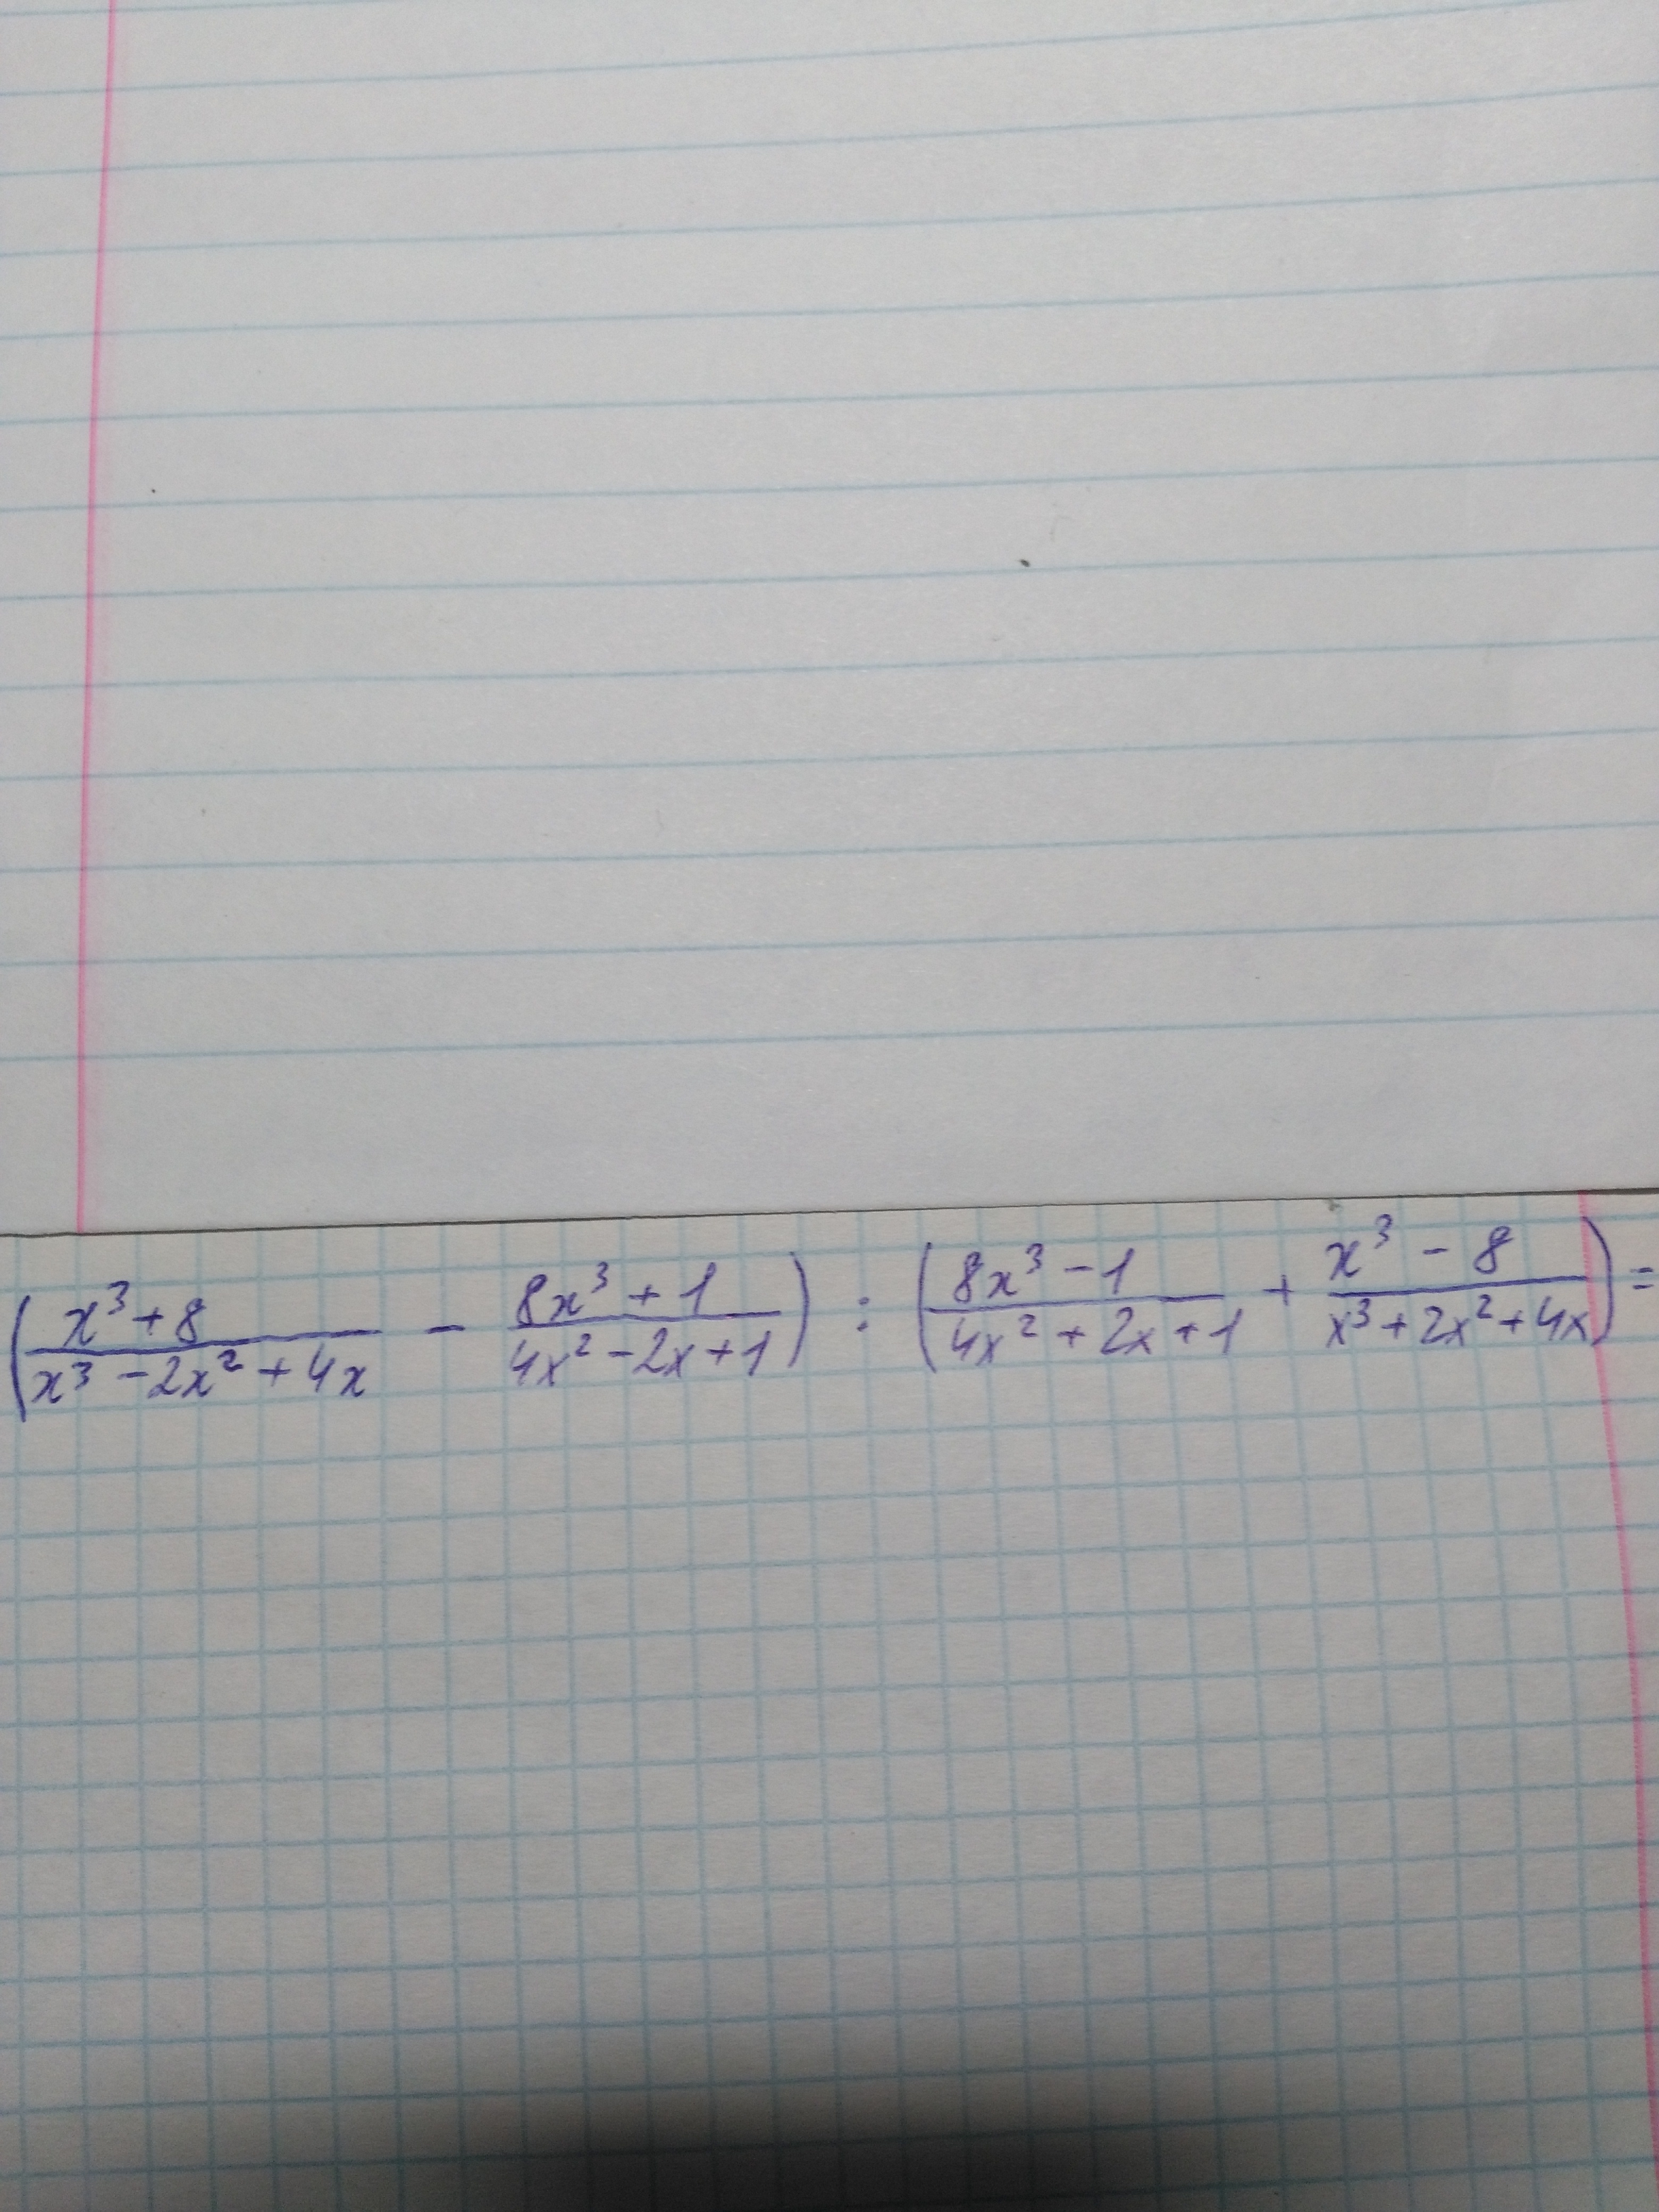 (x³+8)/(x³-2x²+4x) - (8x³+1)/(4x²-2x+1)) : ((8x³-1)/(4x²+2x+1) + (x³-8)/(x³+2x²+4x))=